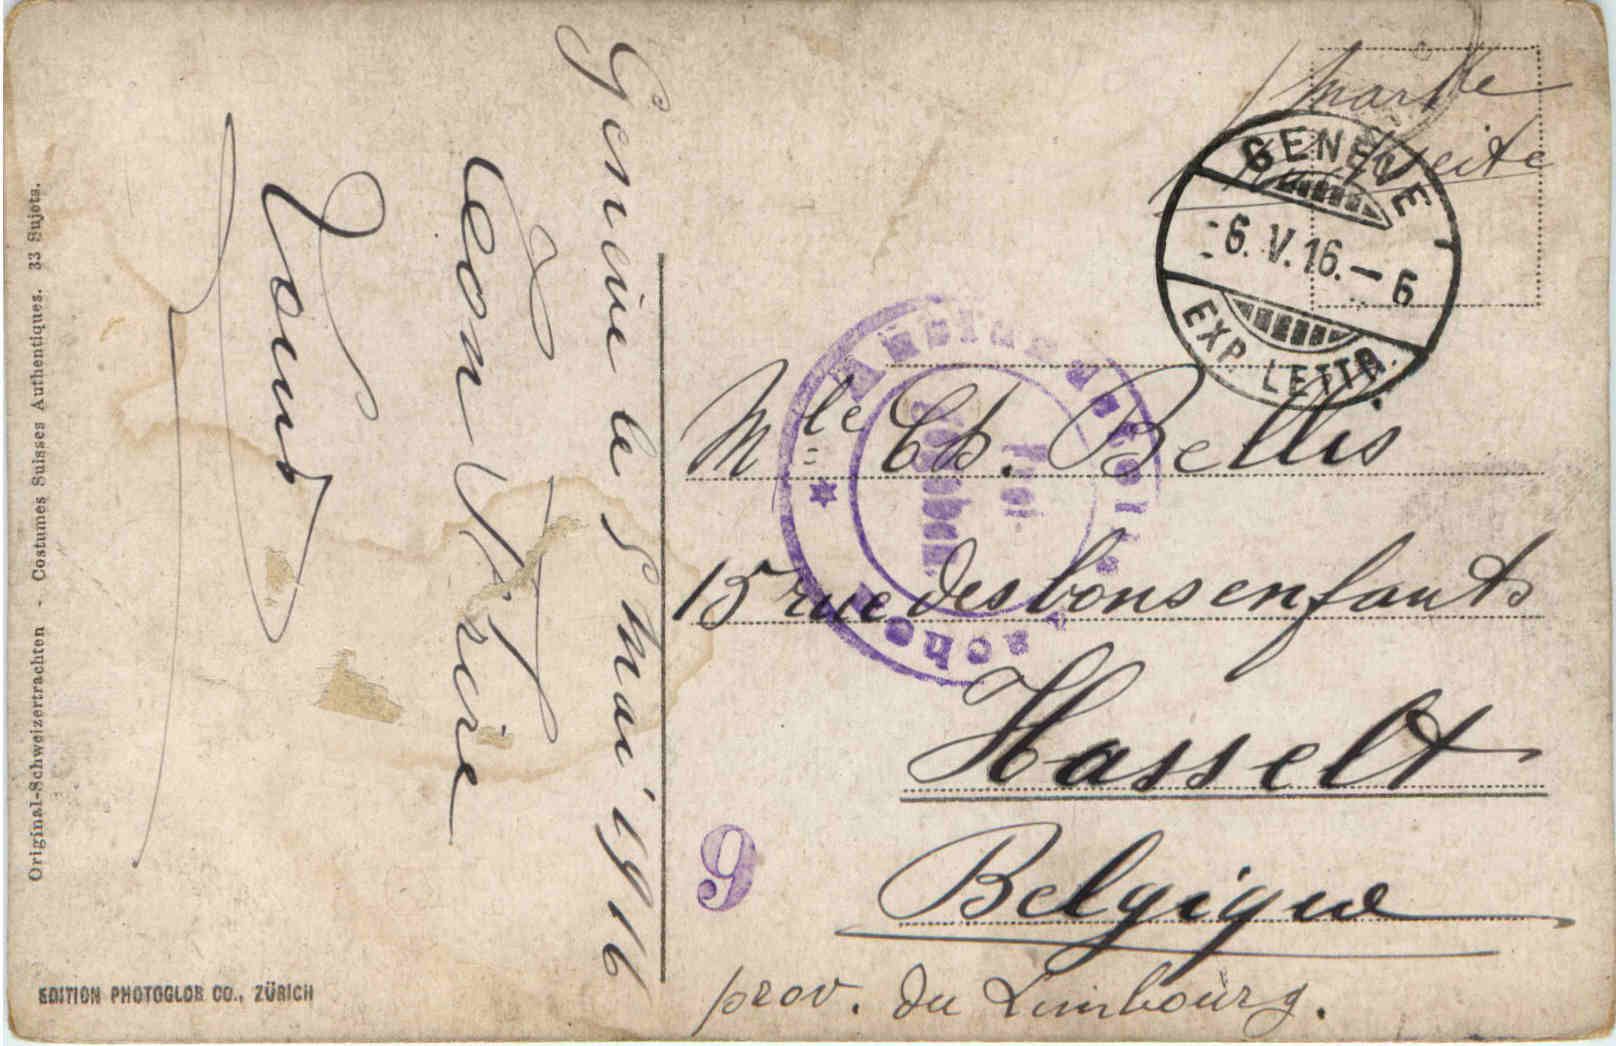 Genève le 5 mai 1916
Léon
Louis
Original-Schweizertrachten - Costumes Suisses Authentiques. 33 Sujets.
EDITION PHOTOGLOB CO., ZÜRICH
GENÈVE 1
-6.V.16.-6
EXP. LETTR.
Mlle Ch. Bellis
15 rue des bons enfants
Hasselt
Belgique
prov. du Limbourg.
9